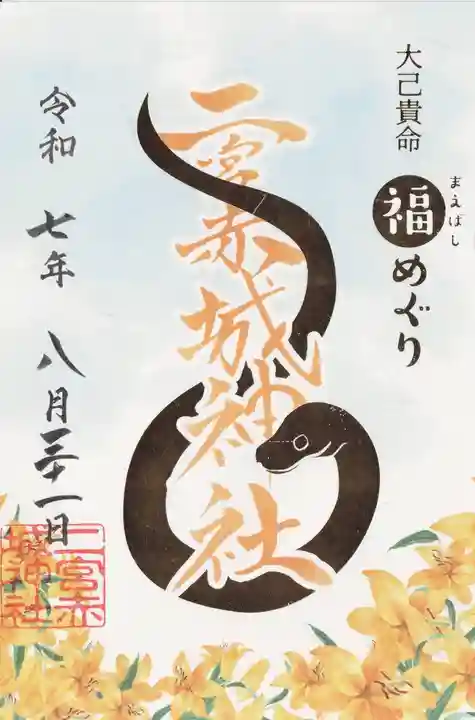 大己貴命
まえばし
福めぐり
二宮赤城神社
令和 七年 八月三十一日
二宮赤
城神社